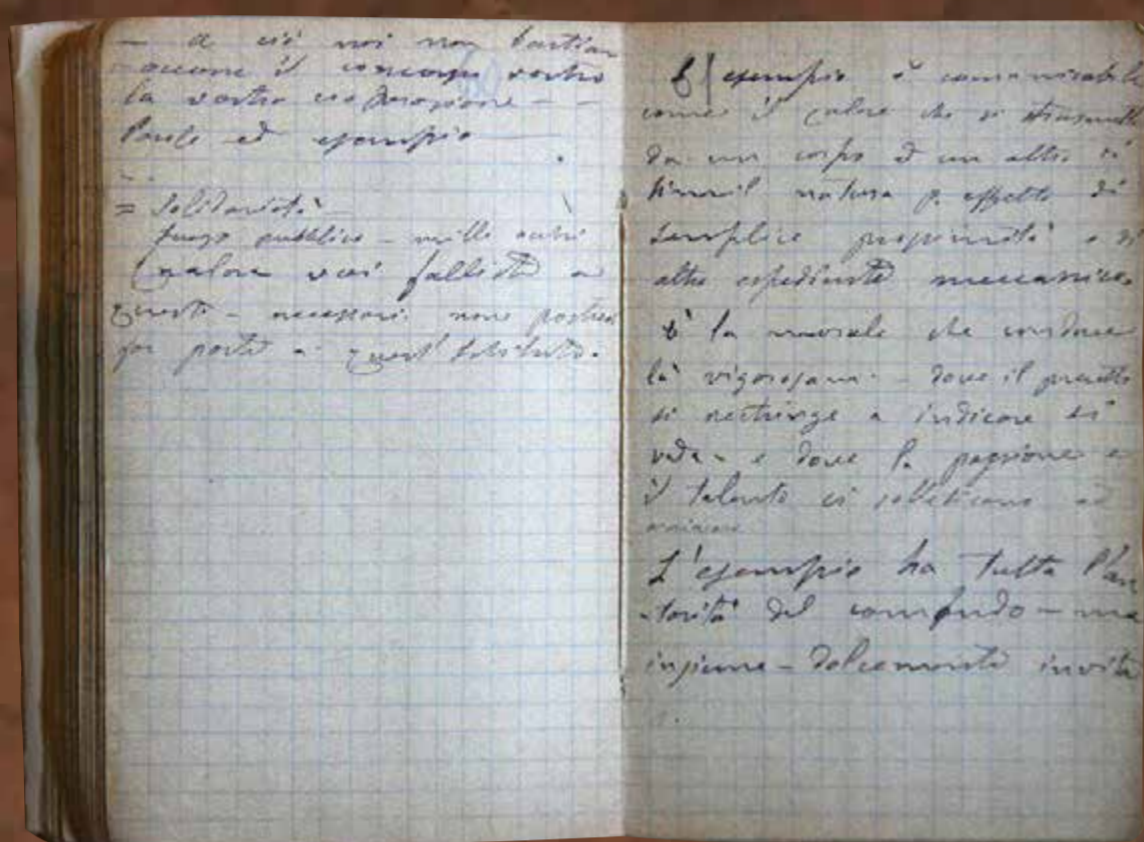 – a ciò noi non bastiam
occorre il concorso vostro
la vostra cooperazione – –
Parole ed esempio
= Solidarietà –
pubblico – mille
qualora voi falliste a
questo – necessari. non
for porta a quest'Istituto.
L'esempio è comunicabile
come il calore che si trasmette
da un corpo ad un altro di
simil natura p. effetto di
semplice propinquità o di
altro espediente meccanico.
È la morale che conduce
là vigorosam. – dove il precetto
si restringe a indicare si
vada – e dove la passione e
il talento ci solleticano ad
L'esempio ha tutta l'au
torità del comando – ma
insieme – dolcemente invita